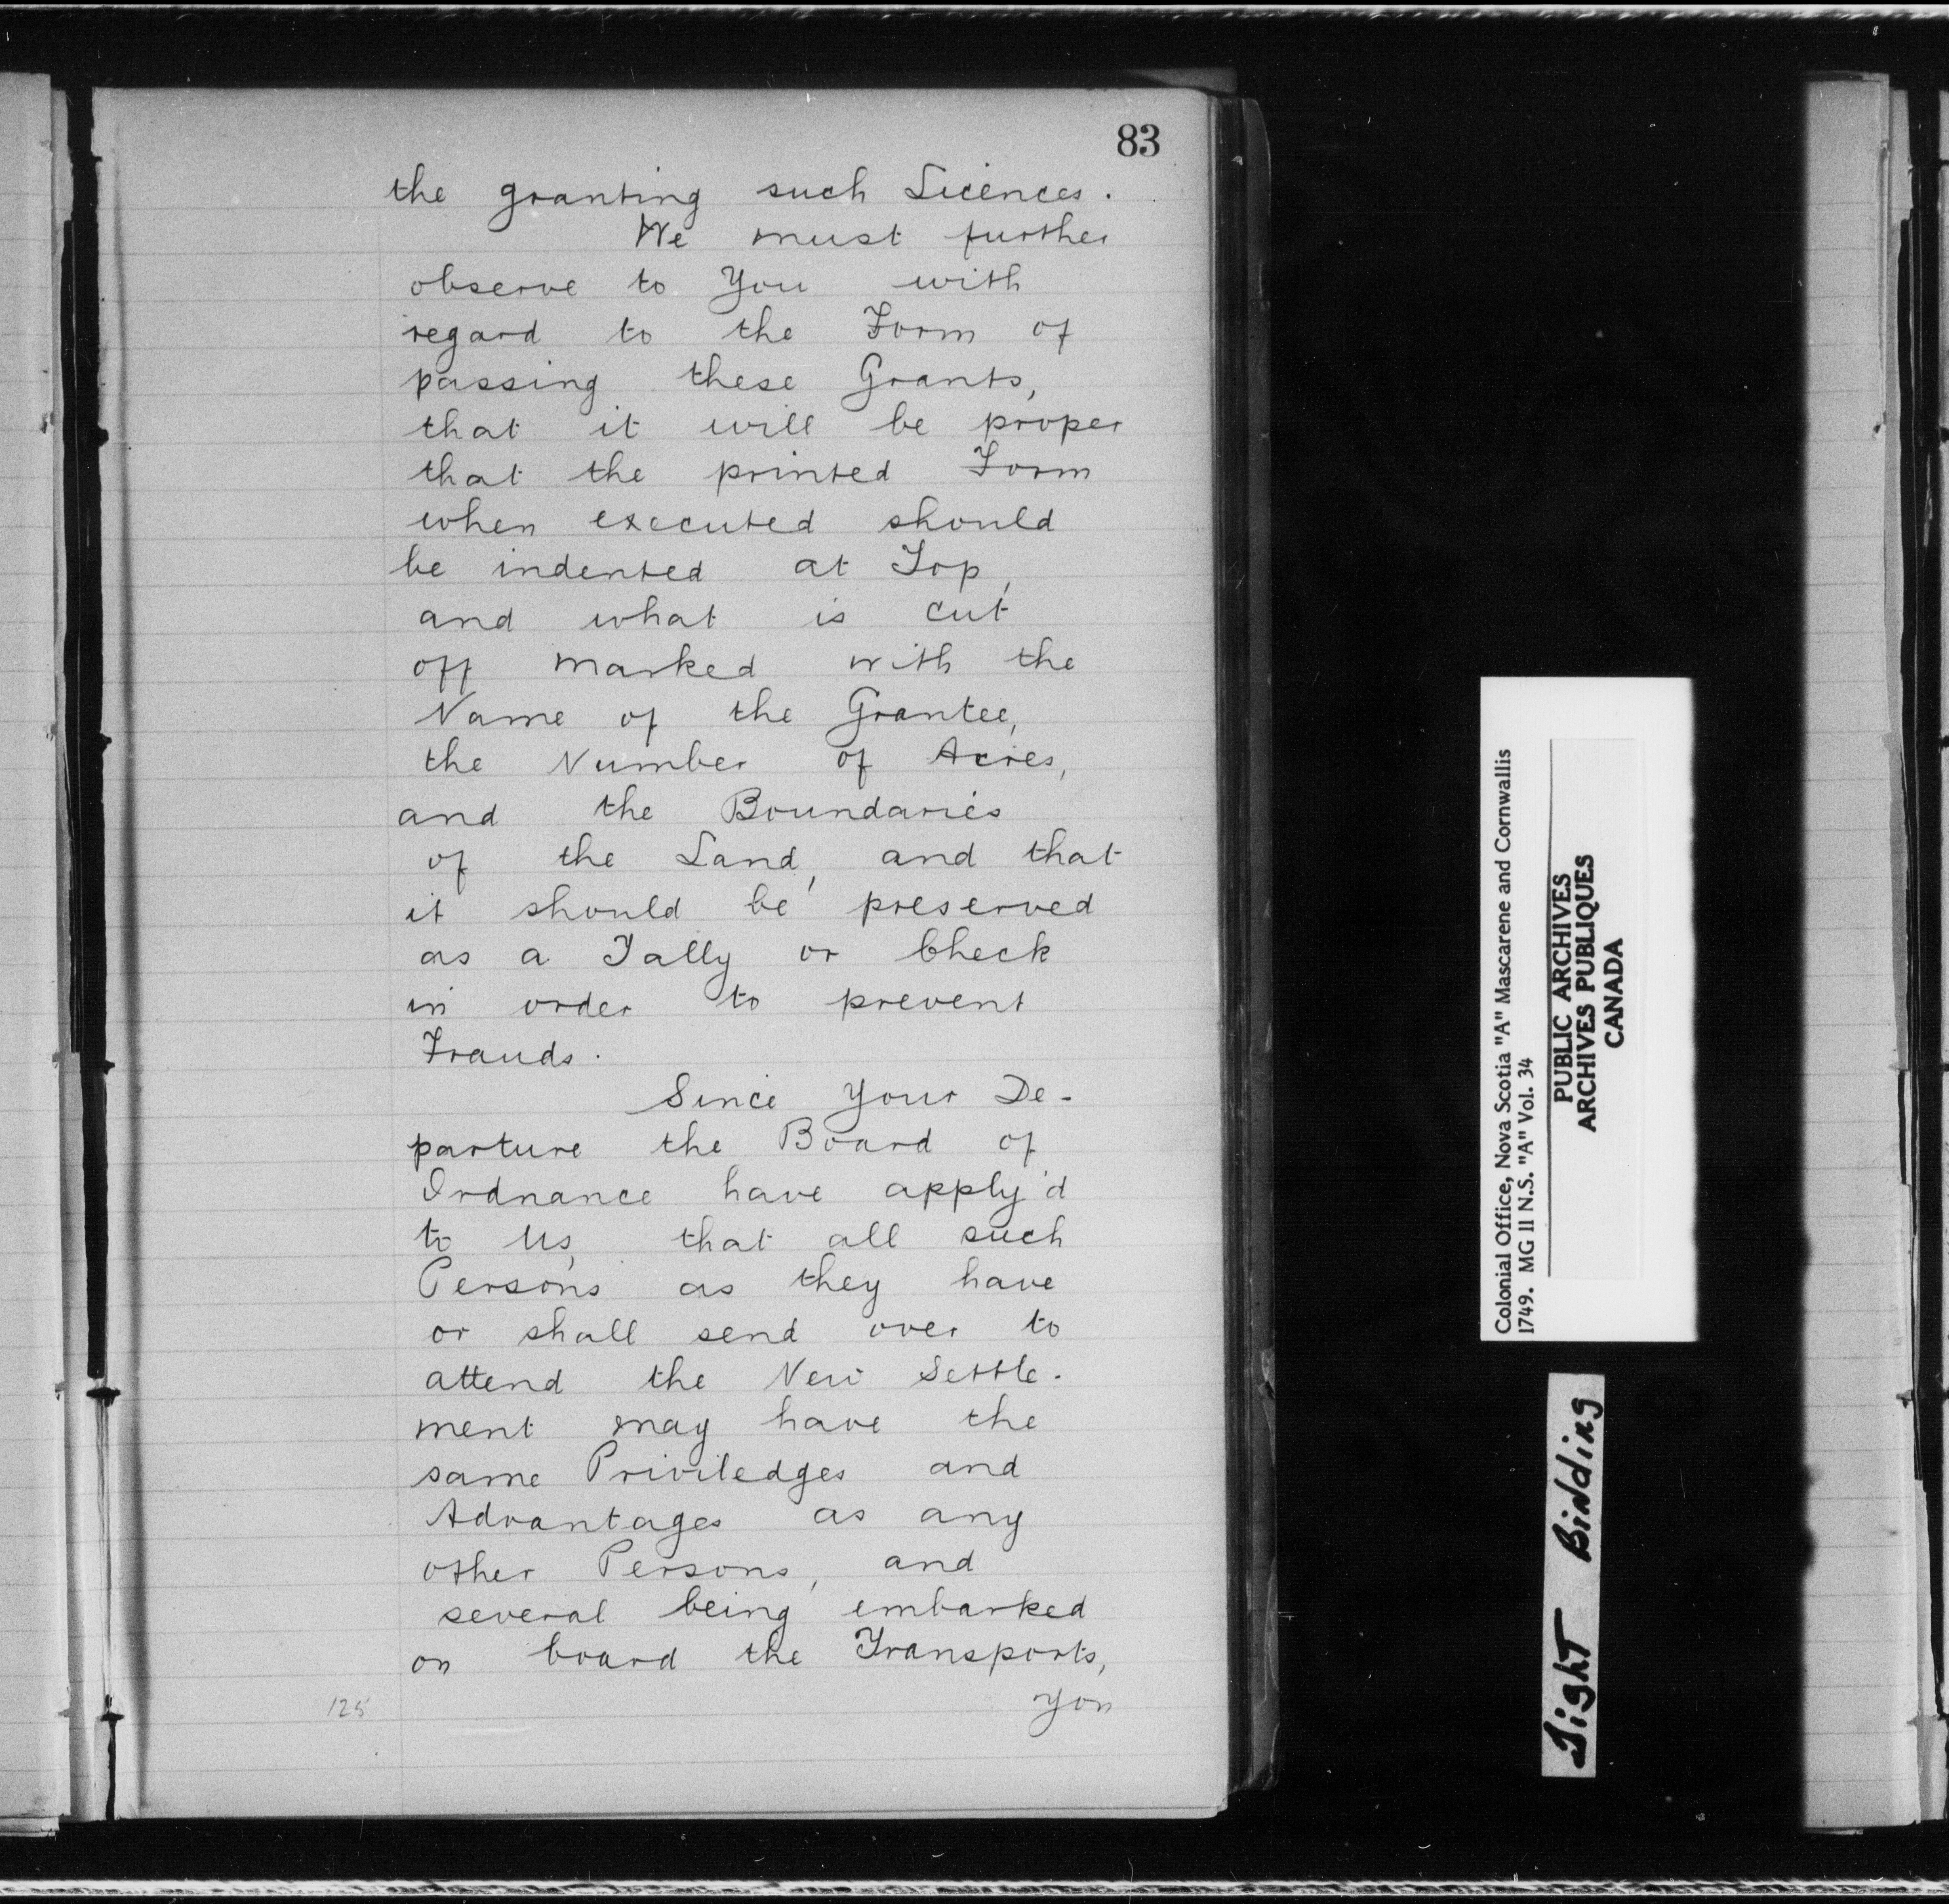 83
the granting such Licences.
We must further
observe to You with
regard to the Form of
passing these Grants,
that it will be proper
that the printed Form
when executed should
be indented at Top,
and what is cut
off marked with the
Name of the Grantee,
the Number of Acres,
and the Boundaries
of the Land, and that
it should be preserved
as a Tally or Check
in order to prevent
Frauds.
Since Your De-
parture the Board of
Ordnance have apply'd
to Us, that all such
Persons as they have
or shall send over to
attend the New Settle-
ment may have the
same Priviledges and
Advantages as any
other Persons, and
several being embarked
on board the Transports,
you
125
Colonial Office, Nova Scotia "A" Mascarene and Cornwallis
1749. MG II N.S. "A" Vol. 34
PUBLIC ARCHIVES
ARCHIVES PUBLIQUES
CANADA
Tight Bindding